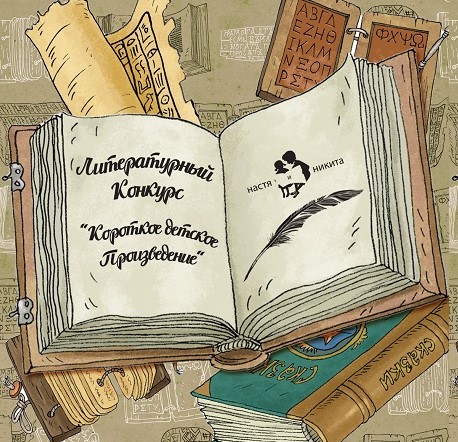 АВГД
ΕΖΗΘ
ΙΚΛΜ
ΝΞΟΠ
ΡΣΤ
ΦΧΨΩ
Литературный
Конкурс
"Короткое детское
Произведение"
настя и никита
Сказки
СКАЗКИ